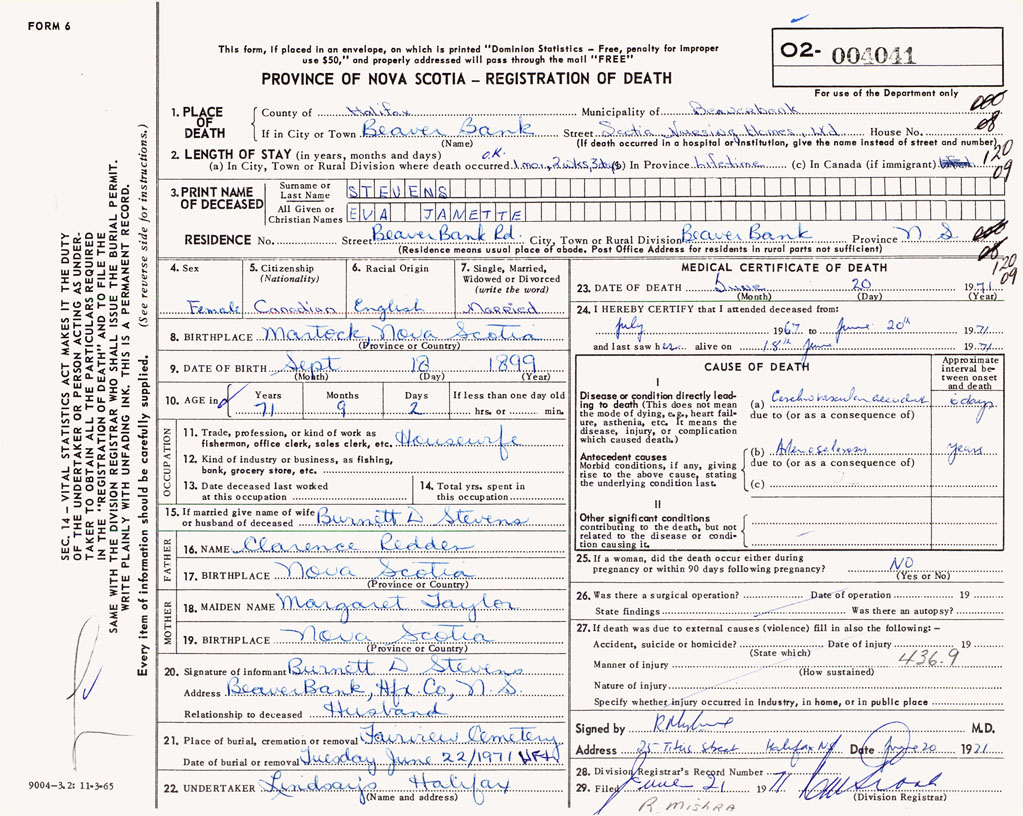 FORM 6
This form, if placed in an envelope, on which is printed "Dominion Statistics – Free, penalty for improper
use $50," and properly addressed will pass through the mail "FREE"
PROVINCE OF NOVA SCOTIA – REGISTRATION OF DEATH
02- 004041
For use of the Department only
SEC. 14 – VITAL STATISTICS ACT MAKES IT THE DUTY
OF THE UNDERTAKER OR PERSON ACTING AS UNDER-
TAKER TO OBTAIN ALL THE PARTICULARS REQUIRED
IN THE "REGISTRATION OF DEATH" AND TO FILE THE
SAME WITH THE DIVISION REGISTRAR WHO SHALL ISSUE THE BURIAL PERMIT.
WRITE PLAINLY WITH UNFADING INK. THIS IS A PERMANENT RECORD.
Every item of information should be carefully supplied. (See reverse side for instructions.)
1. PLACE OF DEATH
County of Halifax Municipality of Beaverbank
If in City or Town Beaver Bank Street Scotia Nursing Homes, Ltd House No.
(Name) (If death occurred in a hospital or institution, give the name instead of street and number)
000
08
120
09
2. LENGTH OF STAY (in years, months and days) O.K.
(a) In City, Town or Rural Division where death occurred 1 mo., 2 wks, 3 days (b) In Province Lifetime (c) In Canada (if immigrant)
3. PRINT NAME OF DECEASED
Surname or Last Name STEVENS
All Given or Christian Names EVA JANETTE
RESIDENCE No. Street Beaver Bank Rd. City, Town or Rural Division Beaver Bank Province N S
(Residence means usual place of abode. Post Office Address for residents in rural parts not sufficient)
000
08
120
09
4. Sex 5. Citizenship (Nationality) 6. Racial Origin 7. Single, Married, Widowed or Divorced (write the word)
Female Canadian English Married
8. BIRTHPLACE Martock, Nova Scotia
(Province or Country)
9. DATE OF BIRTH Sept 18 1899
(Month) (Day) (Year)
10. AGE in Years Months Days If less than one day old
71 9 2 hrs. or min.
OCCUPATION
11. Trade, profession, or kind of work as
fisherman, office clerk, sales clerk, etc. Housewife
12. Kind of industry or business, as fishing,
bank, grocery store, etc.
13. Date deceased last worked
at this occupation
14. Total yrs. spent in
this occupation
15. If married give name of wife
or husband of deceased Burnett D Stevens
FATHER
16. NAME Clarence Redden
17. BIRTHPLACE Nova Scotia
(Province or Country)
MOTHER
18. MAIDEN NAME Margaret Taylor
19. BIRTHPLACE Nova Scotia
(Province or Country)
20. Signature of informant Burnett D Stevens
Address Beaver Bank, Hfx. Co, N. S.
Relationship to deceased Husband
21. Place of burial, cremation or removal Fairview Cemetery
Date of burial or removal Tuesday June 22/1971
22. UNDERTAKER Lindsay's Halifax
(Name and address)
MEDICAL CERTIFICATE OF DEATH
23. DATE OF DEATH June 20 1971
(Month) (Day) (Year)
24. I HEREBY CERTIFY that I attended deceased from:
July 1967 to June 20th 1971
and last saw her alive on 18th June 1971
CAUSE OF DEATH
Approximate interval between onset and death
I
Disease or condition directly lead-
ing to death (This does not mean
the mode of dying, e.g., heart fail-
ure, asthenia, etc. It means the
disease, injury, or complication
which caused death.)
(a) Cerebrovascular accident 6 days
due to (or as a consequence of)
Antecedent causes
Morbid conditions, if any, giving
rise to the above cause, stating
the underlying condition last.
(b) Arteriosclerosis years
due to (or as a consequence of)
(c)
II
Other significant conditions
contributing to the death, but not
related to the disease or condi-
tion causing it.
25. If a woman, did the death occur either during
pregnancy or within 90 days following pregnancy? NO
(Yes or No)
26. Was there a surgical operation? Date of operation 19
State findings Was there an autopsy?
27. If death was due to external causes (violence) fill in also the following: –
Accident, suicide or homicide? Date of injury 19
(State which)
436.9
Manner of injury
(How sustained)
Nature of injury
Specify whether injury occurred in industry, in home, or in public place
Signed by M.D.
Address 25 Titus Street Halifax NS Date June 20 1971
28. Division Registrar's Record Number
29. Filed June 21 1971
(Division Registrar)
R. MISHRA
9004-3.2: 11-3-65